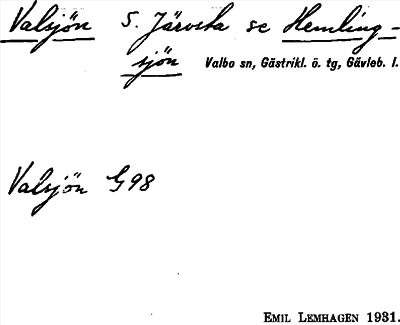 Valsjön S. Järvsta se Hemling-
sjön Valbo sn, Gästrikl. ö. tg, Gävleb. l.
Valsjön G98
EMIL LEMHAGEN 1931.